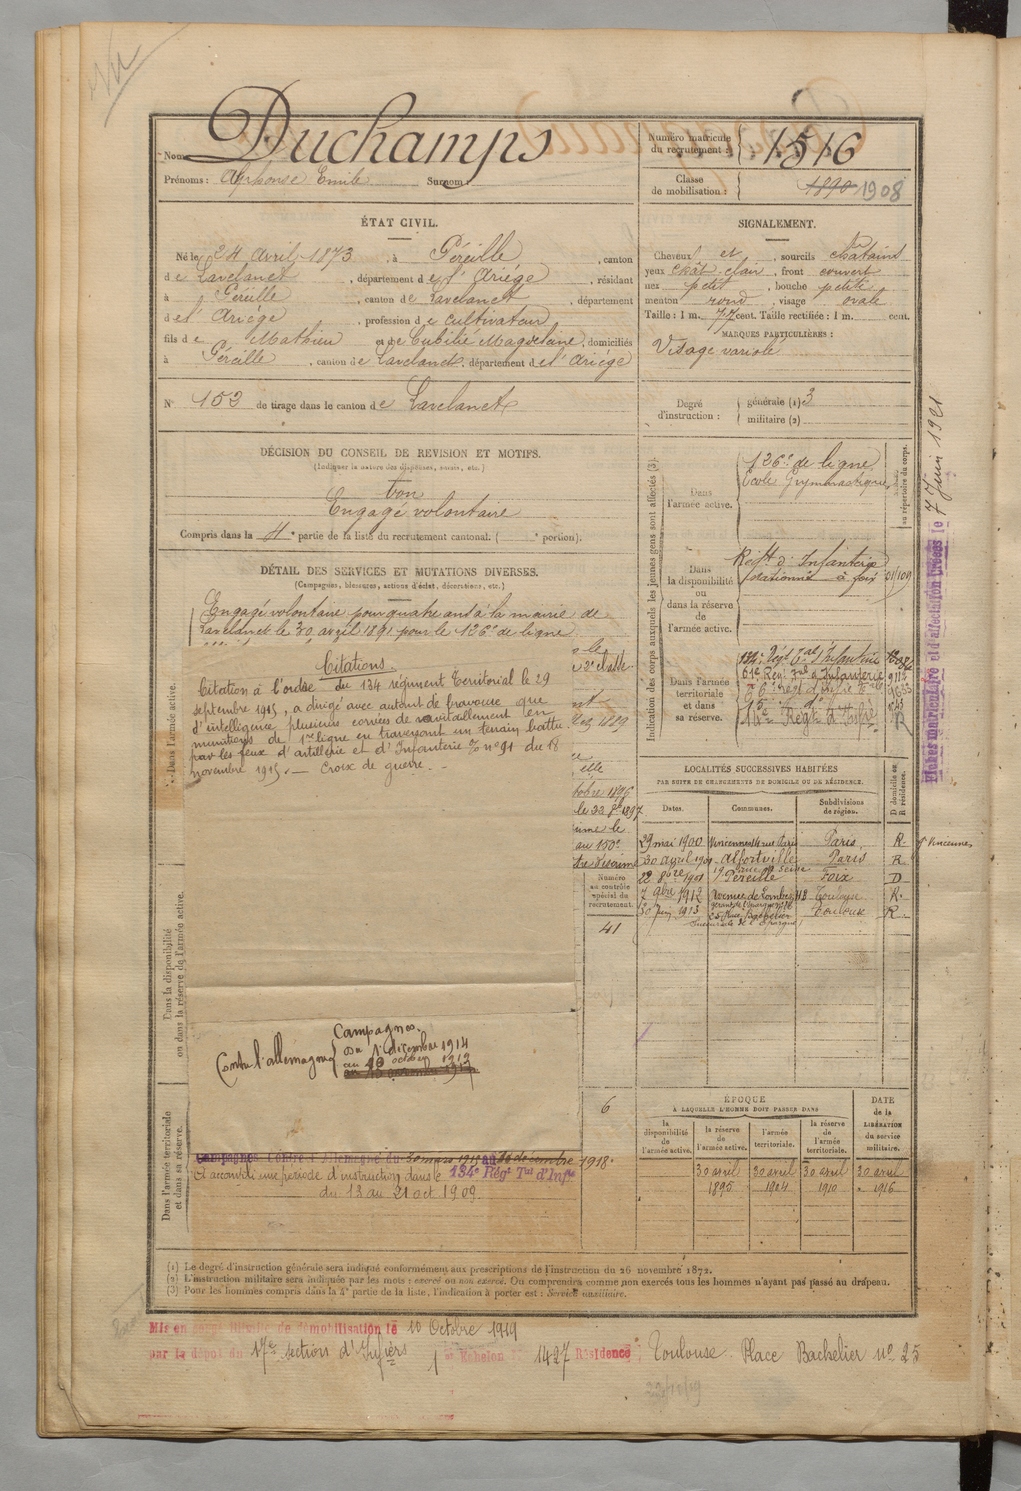 Nom Duchamps
Prénoms : Alphonse Emile Surnom :
Numéro matricule du recrutement : 1516
Classe de mobilisation : 1890 1908
ÉTAT CIVIL.
Né le 24 Avril 1873, à Péreille, canton
de Lavelanet, département de l'Ariége, résidant
à Péreille, canton de Lavelanet, département
de l'Ariége, profession de cultivateur
fils de Mathieu et de Cubilié Magdeleine, domiciliés
à Péreille, canton de Lavelanet, département de l'Ariége
SIGNALEMENT.
Cheveux et, sourcils chatains
yeux chât clair, front couvert
nez petit, bouche petite
menton rond, visage ovale
Taille : 1 m. 77 cent. Taille rectifiée : 1 m. cent.
MARQUES PARTICULIÈRES :
Visage variolé
N° 152 de tirage dans le canton de Lavelanet
Degré d'instruction : générale (1) 3
militaire (2)
DÉCISION DU CONSEIL DE REVISION ET MOTIFS.
(Indiquer la nature des dispenses, sursis, etc.)
bon
Engagé volontaire
Compris dans la 4e partie de la liste du recrutement cantonal. ( e portion).
DÉTAIL DES SERVICES ET MUTATIONS DIVERSES.
(Campagnes, blessures, actions d'éclat, décorations, etc.)
Engagé volontaire pour quatre ans à la mairie de
Lavelanet le 30 avril 1891 pour le 126e de ligne
Citations.
Citation à l'ordre du 134 régiment Territorial le 29
septembre 1915, a dirigé avec autant de bravoure que
d'intelligence plusieurs corvées de ravitaillement en
munitions de 1re ligne en traversant un terrain battu
par les feux d'artillerie et d'Infanterie n° 91 du 18
novembre 1915. — Croix de guerre. —
le
2e classe
1889
octobre 1896
le 22 8bre 1897
au 150e
Numéro au contrôle spécial du recrutement.
41
6
Campagnes.
Contre l'allemagne
du 1 décembre 1914
au 10 octobre
Campagnes Contre l'Allemagne du 30 mars 1915 au décembre 1918.
A accompli une période d'instruction dans le 134e Régt Tal d'Infie
du 13 au 21 oct 1909.
Dans l'armée active.
Dans la disponibilité ou dans la réserve de l'armée active.
Dans l'armée territoriale et dans sa réserve.
Indication des corps auxquels les jeunes gens sont affectés (3).
au répertoire du corps.
Dans l'armée active.
126e de ligne
Ecole Gymnastique
Dans la disponibilité ou dans la réserve de l'armée active.
Régt d'Infanterie
stationné à foix
01109
Dans l'armée territoriale et dans sa réserve.
134e Régt Tal d'Infanterie
LOCALITÉS SUCCESSIVES HABITÉES
PAR SUITE DE CHANGEMENTS DE DOMICILE OU DE RÉSIDENCE.
D domicile ou R résidence.
Dates. Communes. Subdivisions de région.
29 mai 1900 Vincennes 14 rue Paris Paris. R. Vincennes
30 avril 1901 Alfortville Paris R
22 8bre 1901 Péreille Foix D
7 9bre 1912 Avenue de Lombez 112 Toulouse R.
30 Juin 1913 25 Place Bachelier Toulouse R.
ÉPOQUE
À LAQUELLE L'HOMME DOIT PASSER DANS
la disponibilité de l'armée active.
la réserve de l'armée active.
l'armée territoriale.
la réserve de l'armée territoriale.
DATE de la LIBÉRATION du service militaire.
30 avril 30 avril 30 avril 30 avril
1895 1904 1910 1916
(1) Le degré d'instruction générale sera indiqué conformément aux prescriptions de l'instruction du 26 novembre 1872.
(2) L'instruction militaire sera indiquée par les mots : exercé ou non exercé. On comprendra comme non exercés tous les hommes n'ayant pas passé au drapeau.
(3) Pour les hommes compris dans la 4e partie de la liste, l'indication à porter est : Service auxiliaire.
Mis en congé illimité de démobilisation le 10 Octobre 1919
par le dépôt du 17e section d'Infiers Echelon N° 1427 Résidence : Toulouse Place Bachelier n° 25
22/10/19
Fiches matriculaire et d'affectation créées le 7 Juin 1921